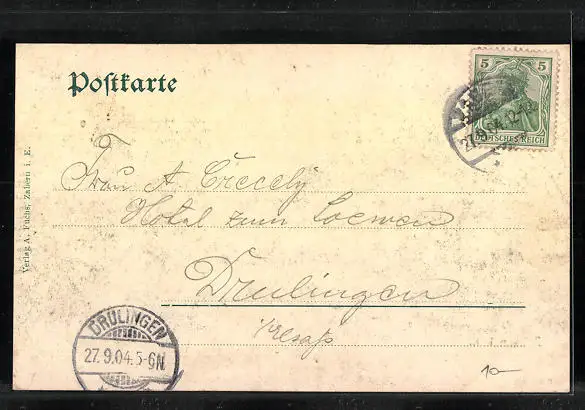 Postkarte
5 5
DEUTSCHES REICH
27.9.04.12-1
Frau A.
Hotel zum Loewen
Drulingen
Elsaß
Verlag A. Fuchs, Zabern i. E.
DRULINGEN
27.9.04.5-6N.
10-